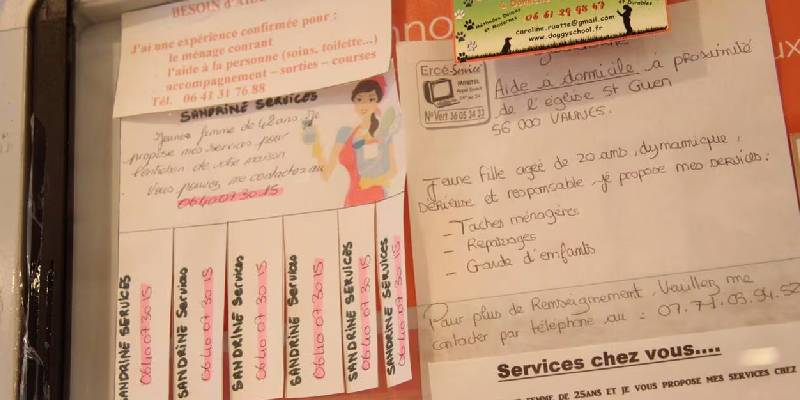 BESOIN D'AID
J'ai une expérience confirmée pour :
le ménage courant
l'aide à la personne (soins, toilette...)
accompagnement – sorties – courses
Tél. 06 41 31 76 88
SANDRINE SERVICES
Jeune femme de 42 ans Je
propose mes services pour
l'entretien de votre maison
Vous pouvez me contacter au
06 40 07 30 15
SANDRINE SERVICES
06 40 07 30 15
SANDRINE Services
06 40 07 30 15
SANDRINE Services
06 40 07 30 15
SANDRINE Services
06 40 07 30 15
SANDRINE SERVICES
06 40 07 30 15
SANDRINE SERVICES
06 40 07 30 15
06 61 29 98 67
caroline.ruotte@gmail.com
www.doggyschool.fr
Ercé-Service
N° Vert 36 05 34 23
Aide à domicile à proximité
de l'église St Guen
56 000 VANNES.
Jeune fille agée de 20 ans, dymamique,
sérieuse et responsable, je propose mes services:
- Taches ménagères
- Repassages
- Garde d'enfants
Pour plus de Renseignement, Veuillez me
contacter par téléphone au : 07.77.03.94.52
Services chez vous....
FEMME DE 25ANS ET JE VOUS PROPOSE MES SERVICES CHEZ